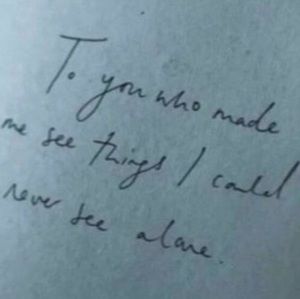 To you who made
me see things I could
never see alone.